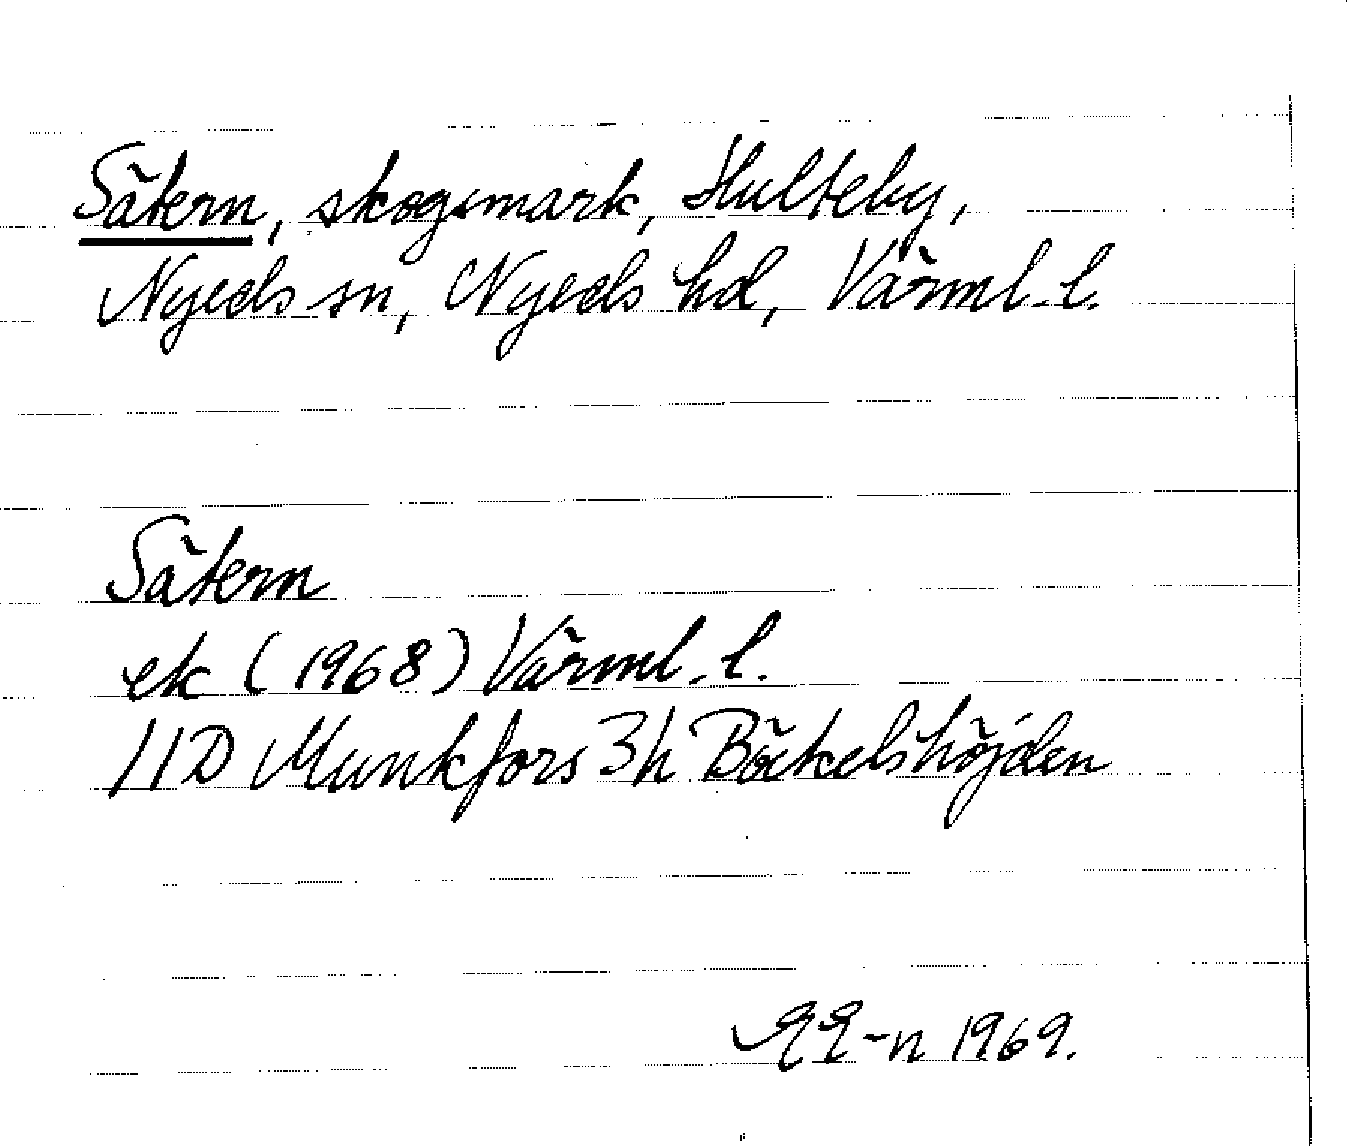 Sätern, skogsmark, Hulteby,
Nyeds sn, Nyeds hd, Värml. l.
Sätern
ek (1968) Värml. l.
11D Munkfors 3h Böckelshöjden
-n 1969.